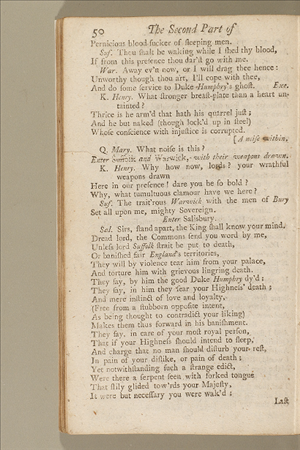 50 The Second Part of
Pernicious blood-sucker of sleeping men.
Suf. Thou shalt be waking while I shed thy blood,
If from this presence thou dar'st go with me.
War. Away ev'n now, or I will drag thee hence:
Unworthy though thou art, I'll cope with thee,
And do some service to Duke Humphry's ghost. Exe.
K. Henry. What stronger breast-plate than a heart un-
tainted?
Thrice is he arm'd that hath his quarrel just;
And he but naked (though lock'd up in steel)
Whose conscience with injustice is corrupted.
[A noise within.
Q. Mary. What noise is this?
Enter Suffolk and Warwick, with their weapons drawn.
K. Henry. Why how now, lords? your wrathful
weapons drawn
Here in our presence? dare you be so bold?
Why, what tumultuous clamour have we here?
Suf. The trait'rous Warwick with the men of Bury
Set all upon me, mighty Sovereign.
Enter Salisbury.
Sal. Sirs, stand apart, the King shall know your mind.
Dread lord, the Commons send you word by me,
Unless lord Suffolk strait be put to death,
Or banished fair England's territories,
They will by violence tear him from your palace,
And torture him with grievous lingring death.
They say, by him the good Duke Humphry dy'd:
They say, in him they fear your Highness' death;
And meer instinct of love and loyalty,
(Free from a stubborn opposite intent,
As being thought to contradict your liking)
Makes them thus forward in his banishment.
They say, in care of your most royal person,
That if your Highness should intend to sleep,
And charge that no man should disturb your rest,
In pain of your dislike, or pain of death;
Yet notwithstanding such a strange edict,
Were there a serpent seen with forked tongue
That slily glided tow'rds your Majesty,
It were but necessary you were wak'd;
Last